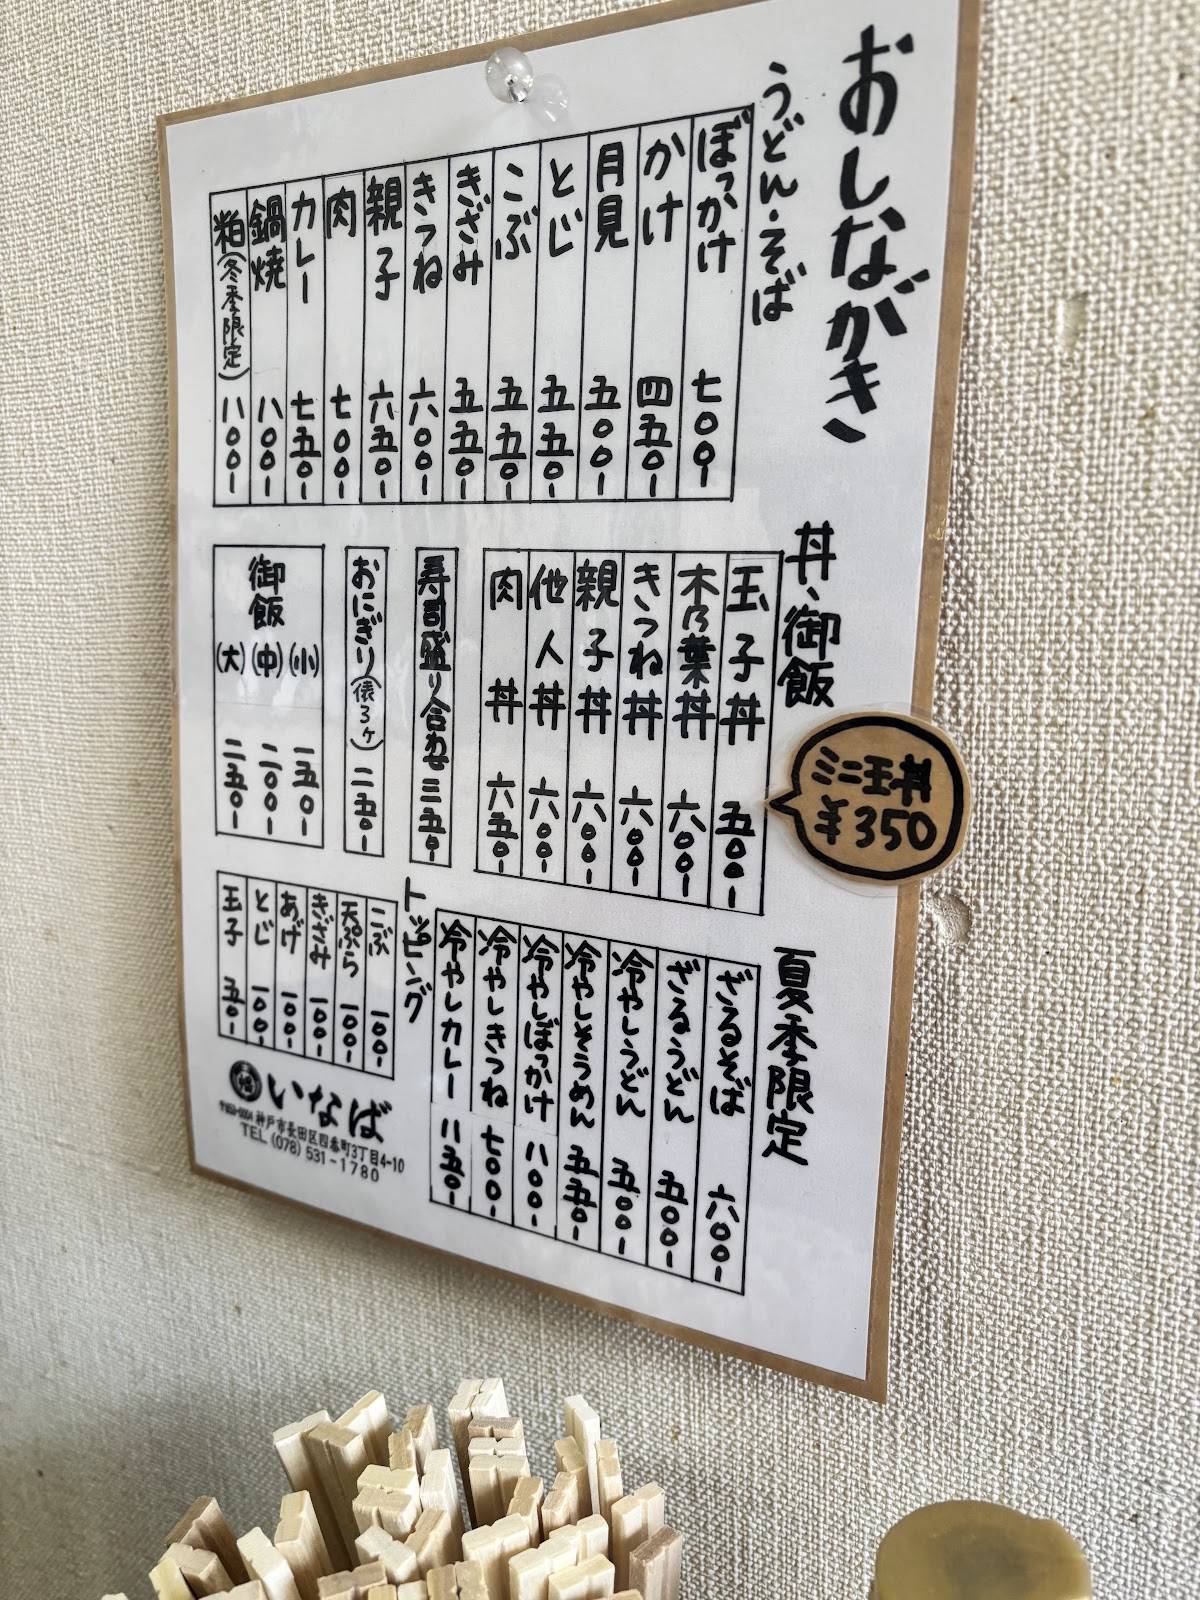 おしながき
うどん・そば
ぼっかけ 七〇〇-
かけ 四五〇-
月見 五〇〇-
とじ 五五〇-
こぶ 五五〇-
きざみ 五五〇-
きつね 六〇〇-
親子 六五〇-
肉 七〇〇-
カレー 七五〇-
鍋焼 八〇〇-
粕(冬季限定) 八〇〇-
丼、御飯
玉子丼 五〇〇-
ミニ玉丼
¥350
木乃葉丼 六〇〇-
きつね丼 六〇〇-
親子丼 六〇〇-
他人丼 六〇〇-
肉丼 六五〇-
寿司盛り合わせ 三五〇-
おにぎり(俵3ヶ) 二五〇-
御飯
(小) 一五〇-
(中) 二〇〇-
(大) 二五〇-
夏季限定
ざるそば 六〇〇-
ざるうどん 五〇〇-
冷やしうどん 五〇〇-
冷やしそうめん 五五〇-
冷やしぼっかけ 八〇〇-
冷やしきつね 七〇〇-
冷やしカレー 八五〇-
トッピング
こぶ 一〇〇-
天ぷら 一〇〇-
きざみ 一〇〇-
あげ 一〇〇-
とじ 一〇〇-
玉子 五〇-
いなば
〒653-0004 神戸市長田区四番町3丁目4-10
TEL (078) 531-1780